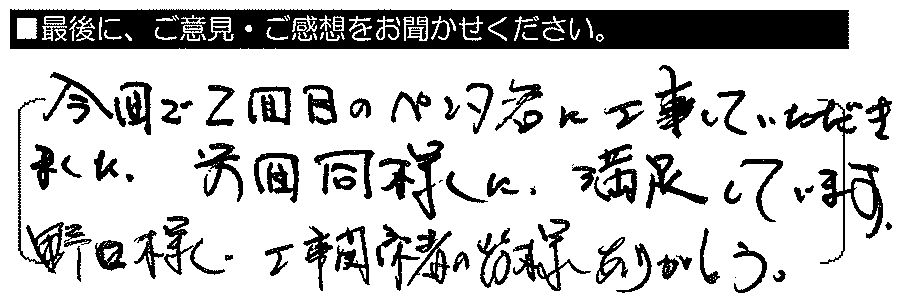 ■最後に、ご意見・ご感想をお聞かせください。
今回で2回目のペンタ君に工事していただき
ました。前回同様に、満足しています。
野口様、工事関係者の皆様ありがとう。